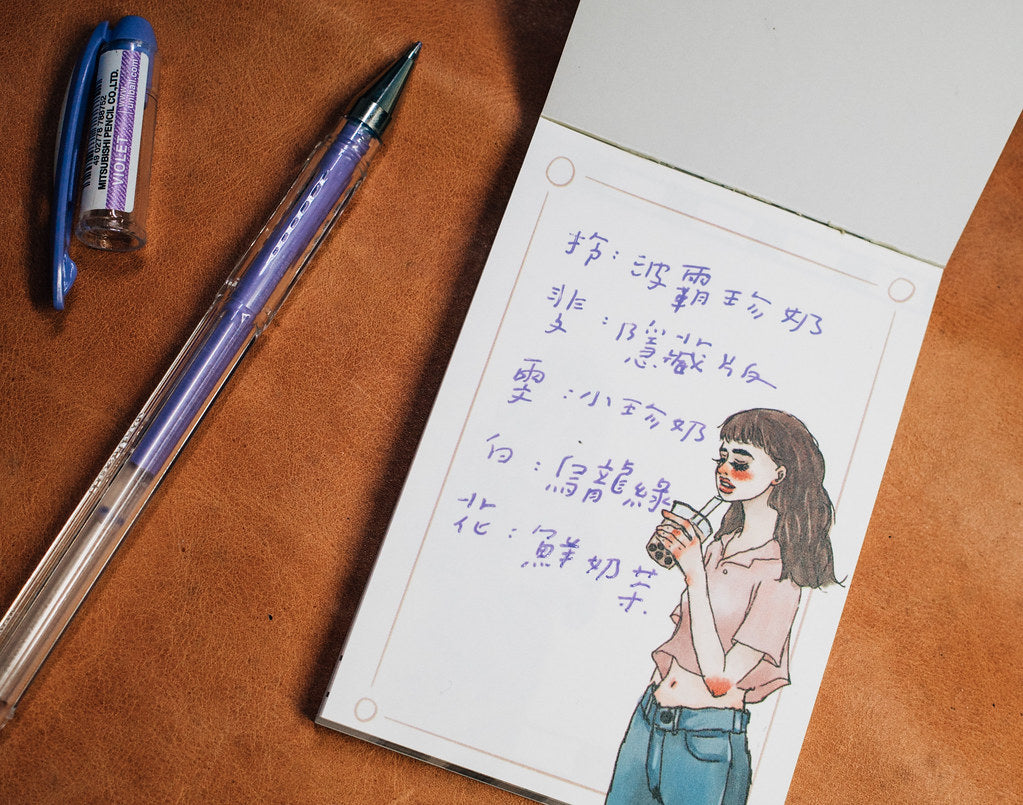 玲：波霸珍奶
斐：隱藏版
雯：小珍奶
白：烏龍綠
花：鮮奶茶
MITSUBISHI PENCIL CO.,LTD.
VIOLET